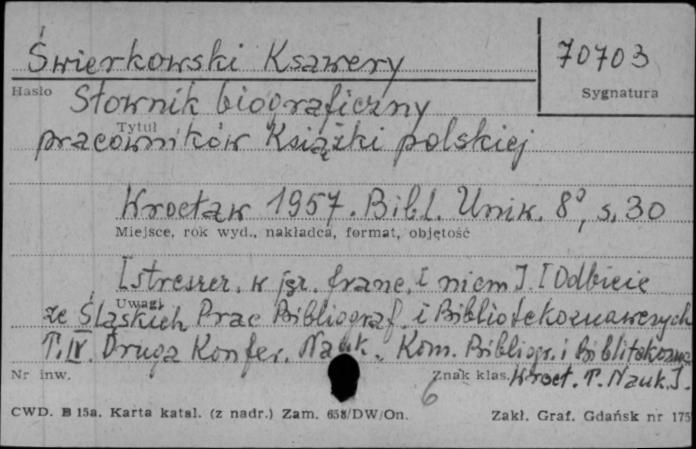 Świerkowski Ksawery
70703
Hasło
Sygnatura
Słownik biograficzny
Tytuł
pracowników Książki polskiej
Wrocław 1957. Bibl. Uniw. 8°, s. 30
Miejsce, rok wyd., nakładca, format, objętość
[streszcz. w jęz. franc. i niem]. [Odbicie
Uwagi
ze Śląskich Prac Bibliograf. i Bibliotekoznawczych
T. IV. Druga Konfer. Nauk. Kom. Bibliogr. i Bibliotekozna
Nr inw.
Znak klas.
Wrocł. T. Nauk.].
6
CWD. B 15a. Karta katal. (z nadr.) Zam. 658/DW/On.
Zakł. Graf. Gdańsk nr 175